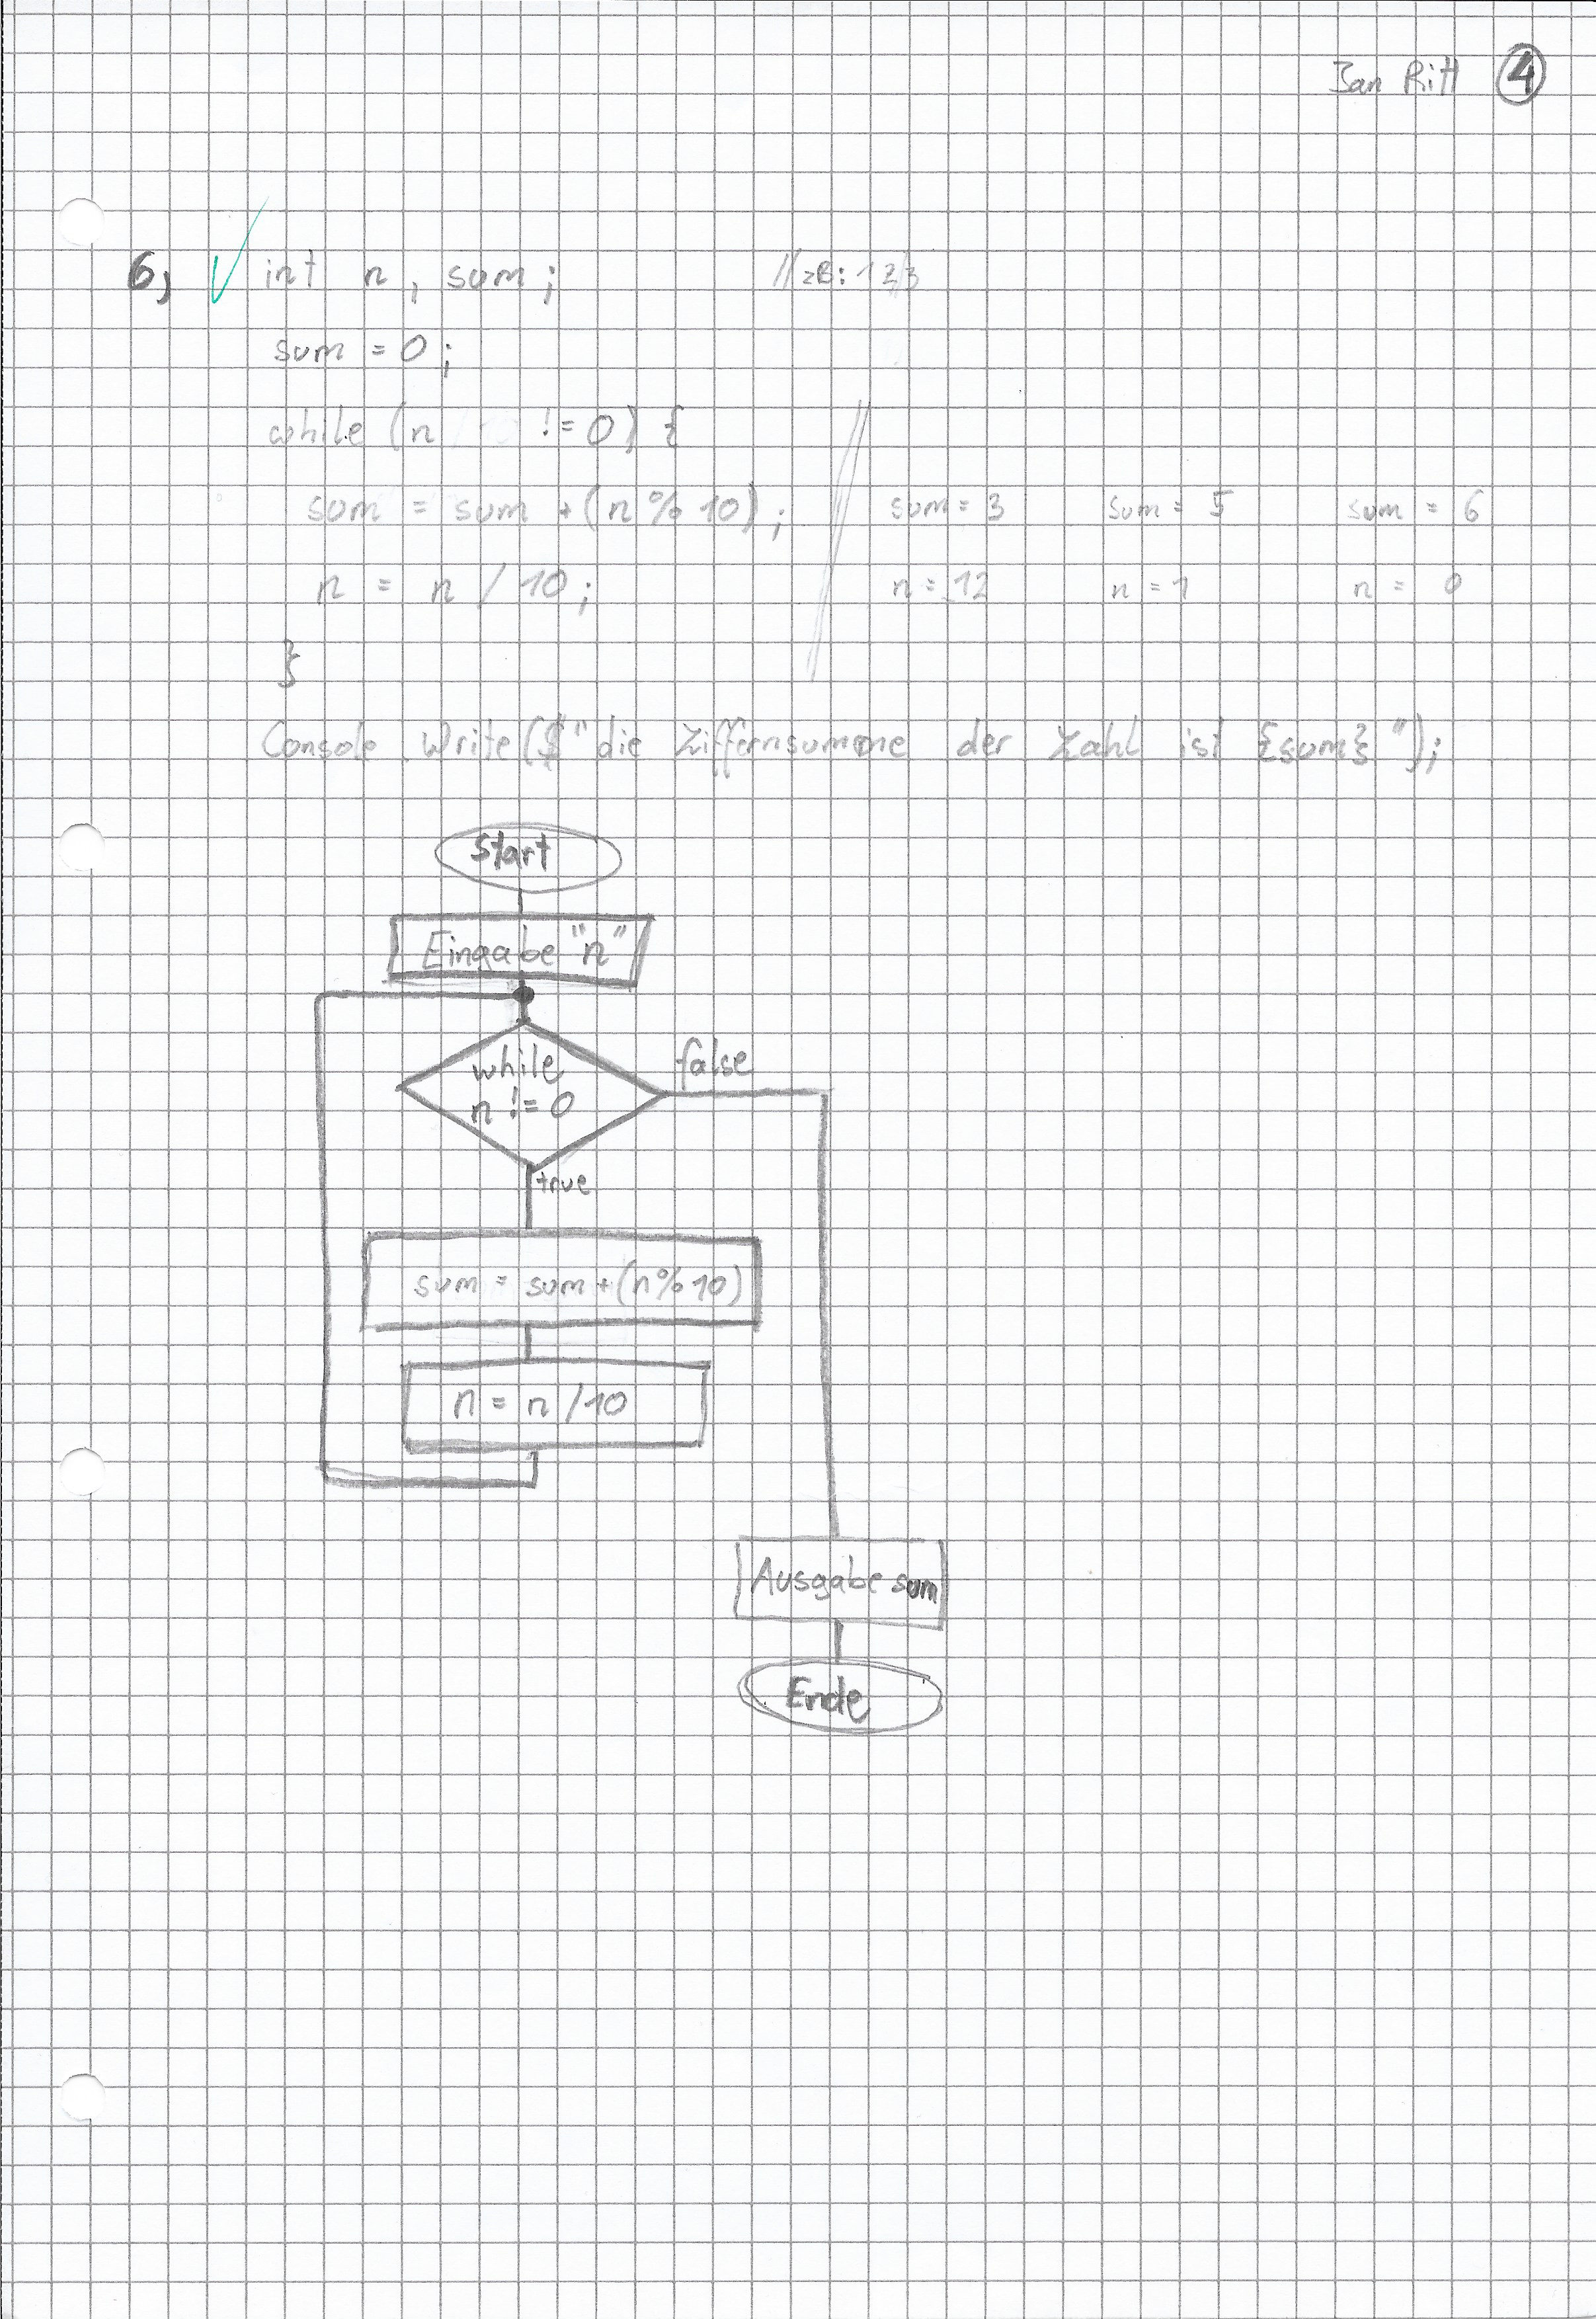 Jan Ritt 4
6, int n, sum; // zB: 123
sum = 0;
while (n != 0) {
sum = sum + (n % 10); // sum = 3 sum = 5 sum = 6
n = n / 10; n = 12 n = 1 n = 0
}
Console.Write($"die Ziffernsumme der Zahl ist {sum}");
Start
Eingabe "n"
while
n != 0
false
true
sum = sum + (n%10)
n = n /10
Ausgabe sum
Ende